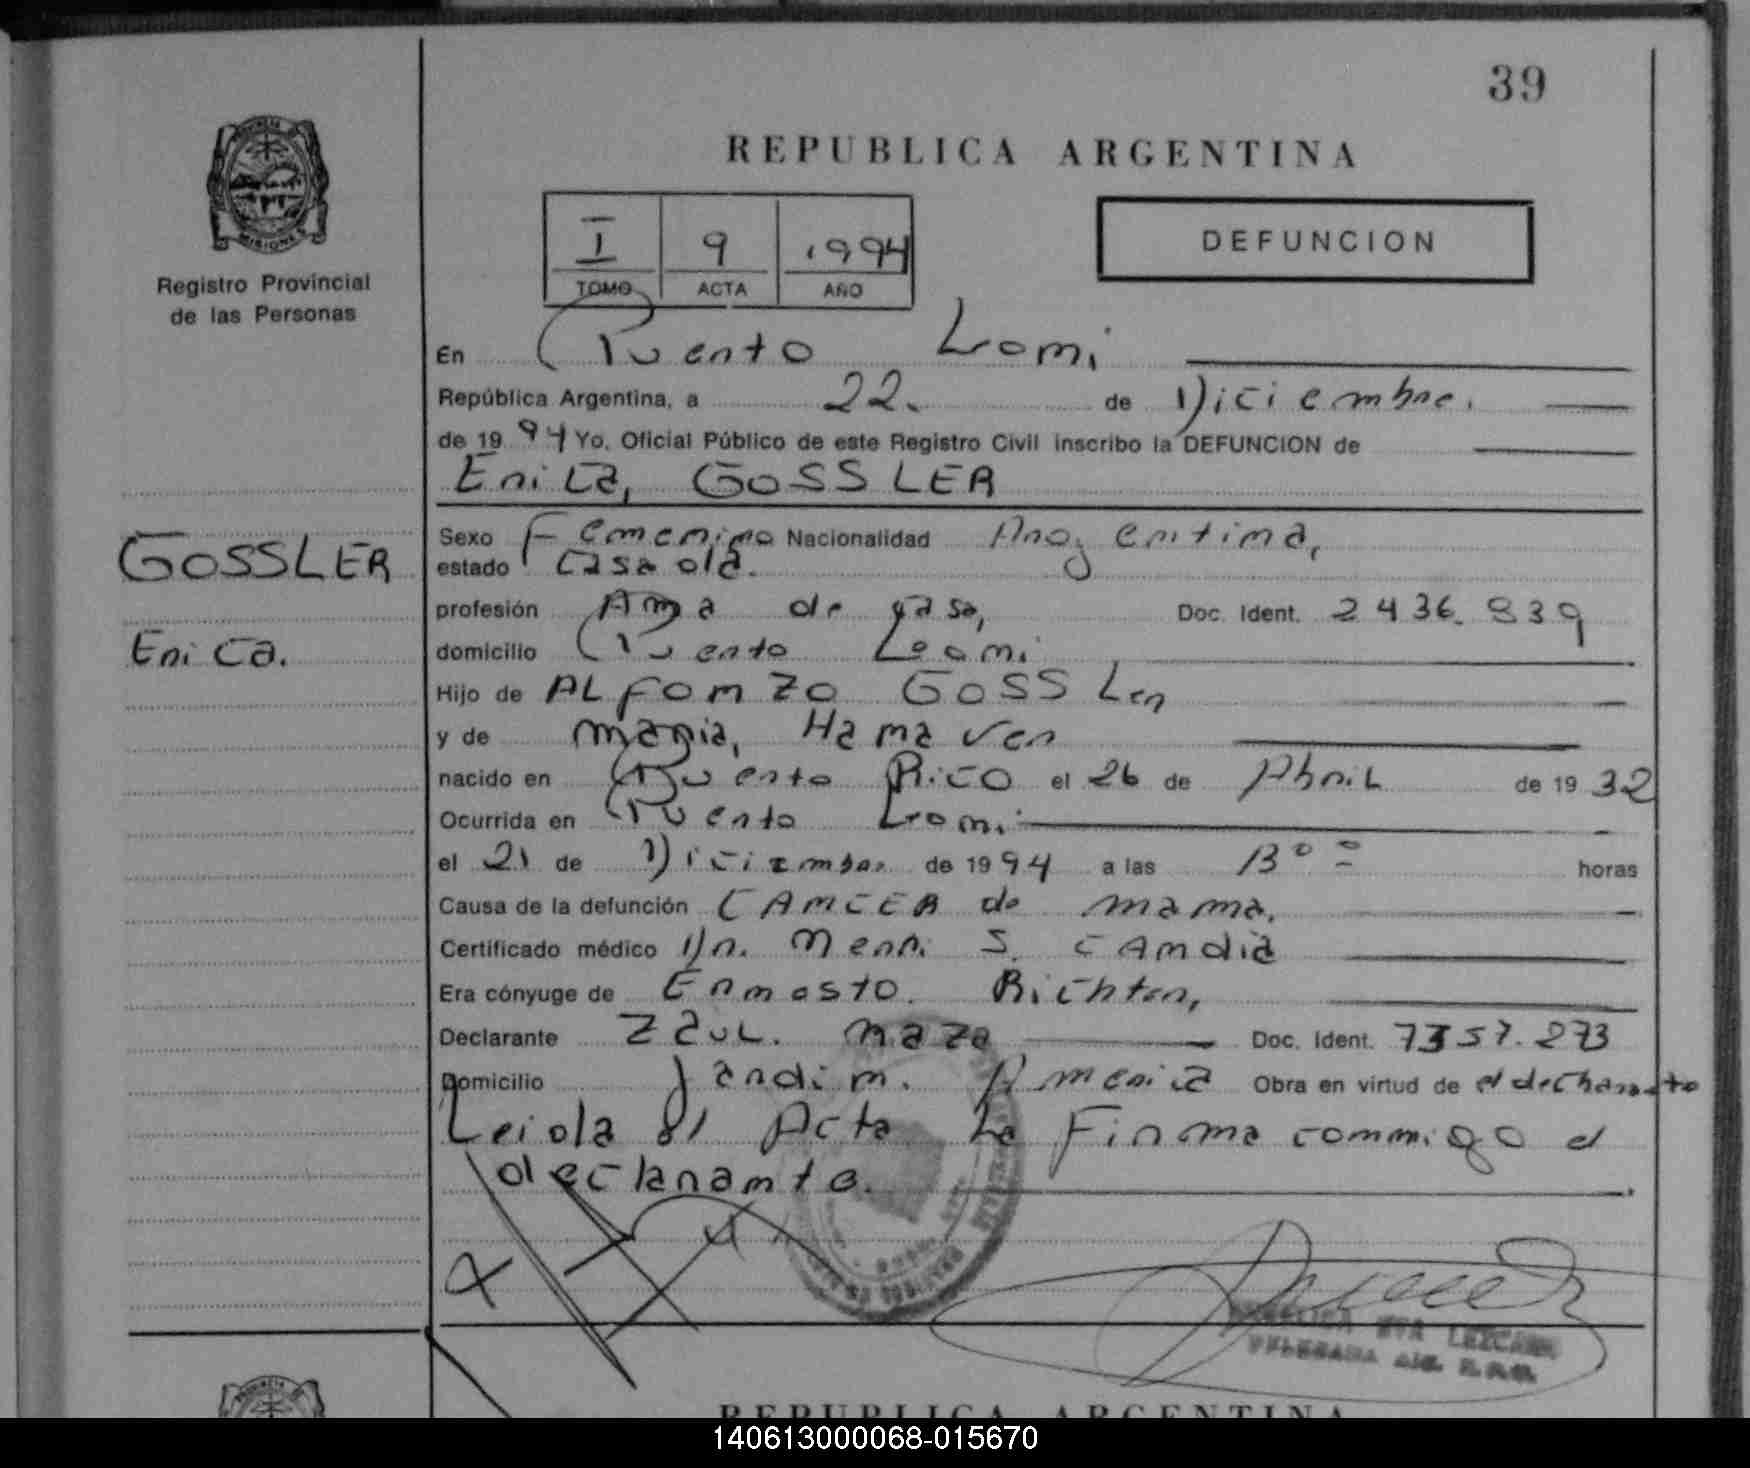 39
PROVINCIA DE
MISIONES
Registro Provincial
de las Personas
REPUBLICA ARGENTINA
I 9 1994
TOMO ACTA AÑO
DEFUNCION
En Puerto Leoni
República Argentina, a 22. de Diciembre.
de 19 94 Yo, Oficial Público de este Registro Civil inscribo la DEFUNCION de
Erica, GOSSLER
GOSSLER
Erica.
Sexo Femenino Nacionalidad Argentina,
estado Casada.
profesión Ama de casa, Doc. Ident. 2436.939
domicilio Puerto Leoni
Hijo de ALFONZO GOSSLer
y de maria, Hamaver
nacido en Puerto Rico el 26 de Abril de 19 32
Ocurrida en Puerto Leoni
el 21 de Diciembre de 19 94 a las 13°° horas
Causa de la defunción CANCER de mama,
Certificado médico Dr. Nenri S. CANdia
Era cónyuge de Ernesto. Richter,
Declarante ZauL. maza Doc. Ident. 7357.273
Domicilio Jardin. America Obra en virtud de el declarante
Leida el Acta La Firma conmigo el
declarante.
EVA LEZCANO
DELEGADA
REPUBLICA ARGENTINA
140613000068-015670